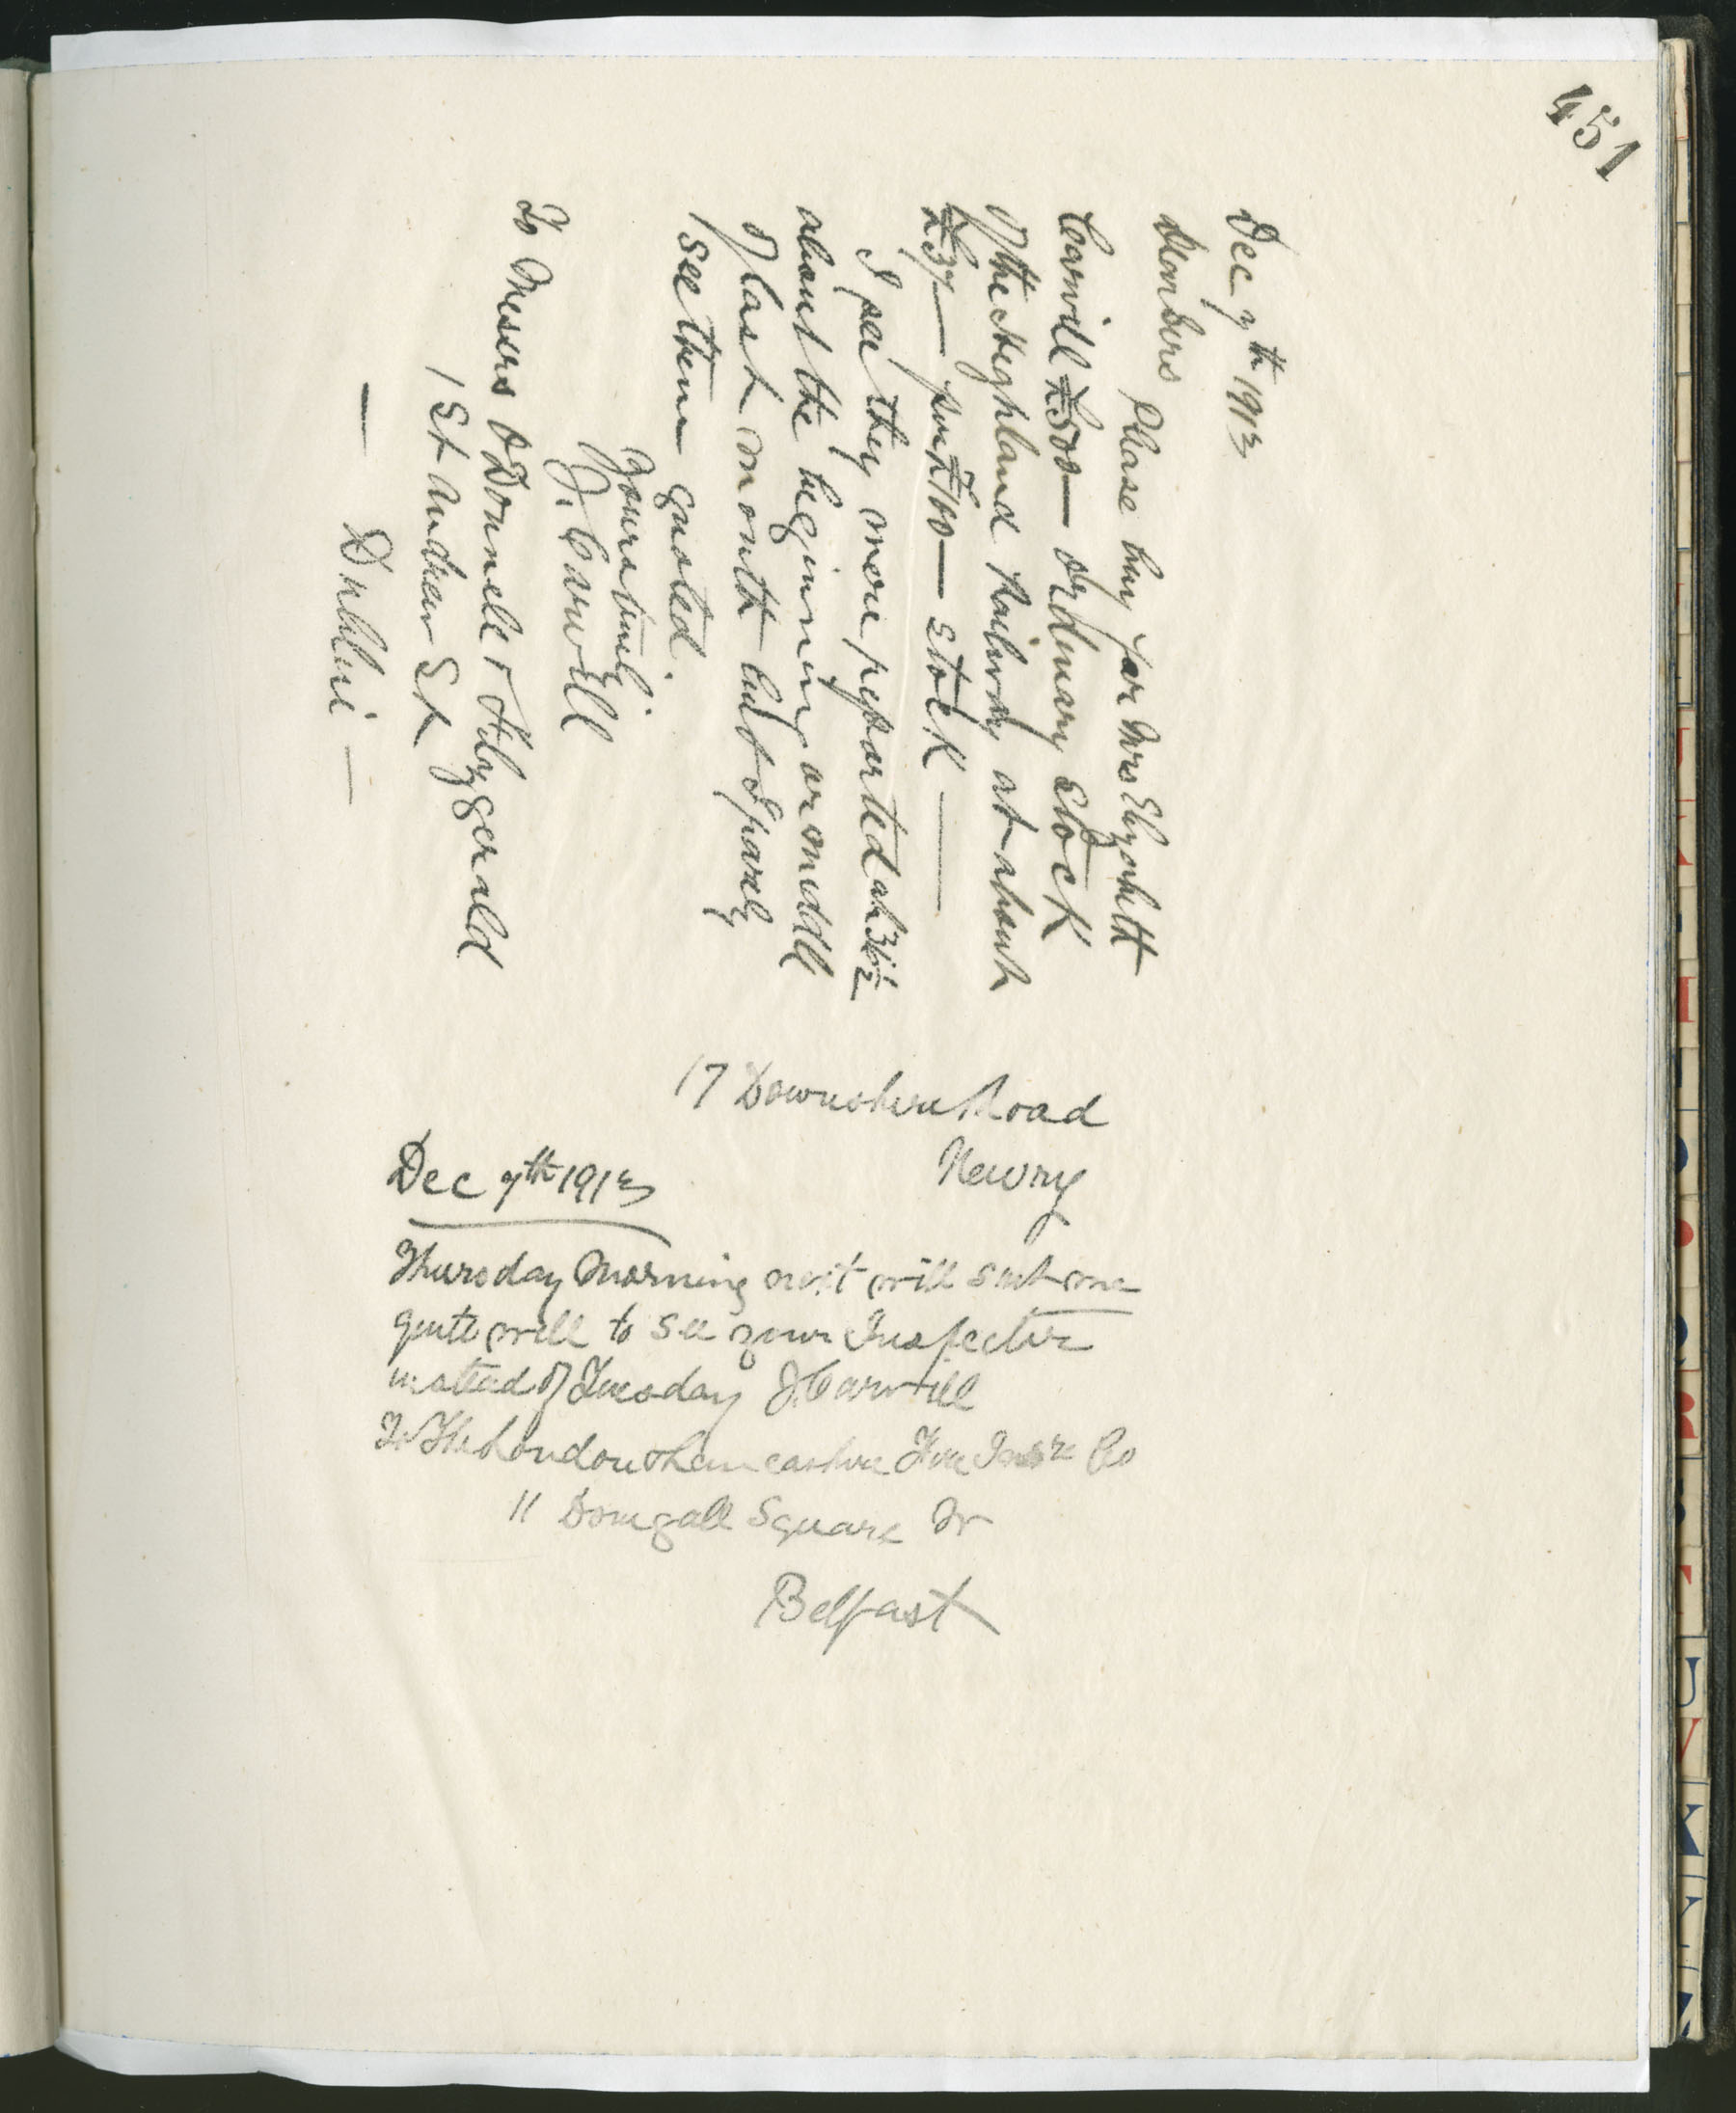 451
Dec 7th 1913
Dear Sirs
Please buy for Mrs Elizabeth
Carvill £500 — Ordinary Stock
of the Highland Railway at about
£37 — per £100 — Stock —
I see they were reported at 36½
about the beginning or middle
of last month but I rarely
see them quoted.
Yours truly
J. Carvill
To Messrs O'Donnell & Fitzgerald
1 St Andrew St
— Dublin —
17 Downshire Road
Newry
Dec 7th 1913
Thursday Morning next will suit me
quite well to see your Inspector
instead of Tuesday J. Carvill
To The London & Lancashire Fire Insce Co
11 Donegall Square
Belfast